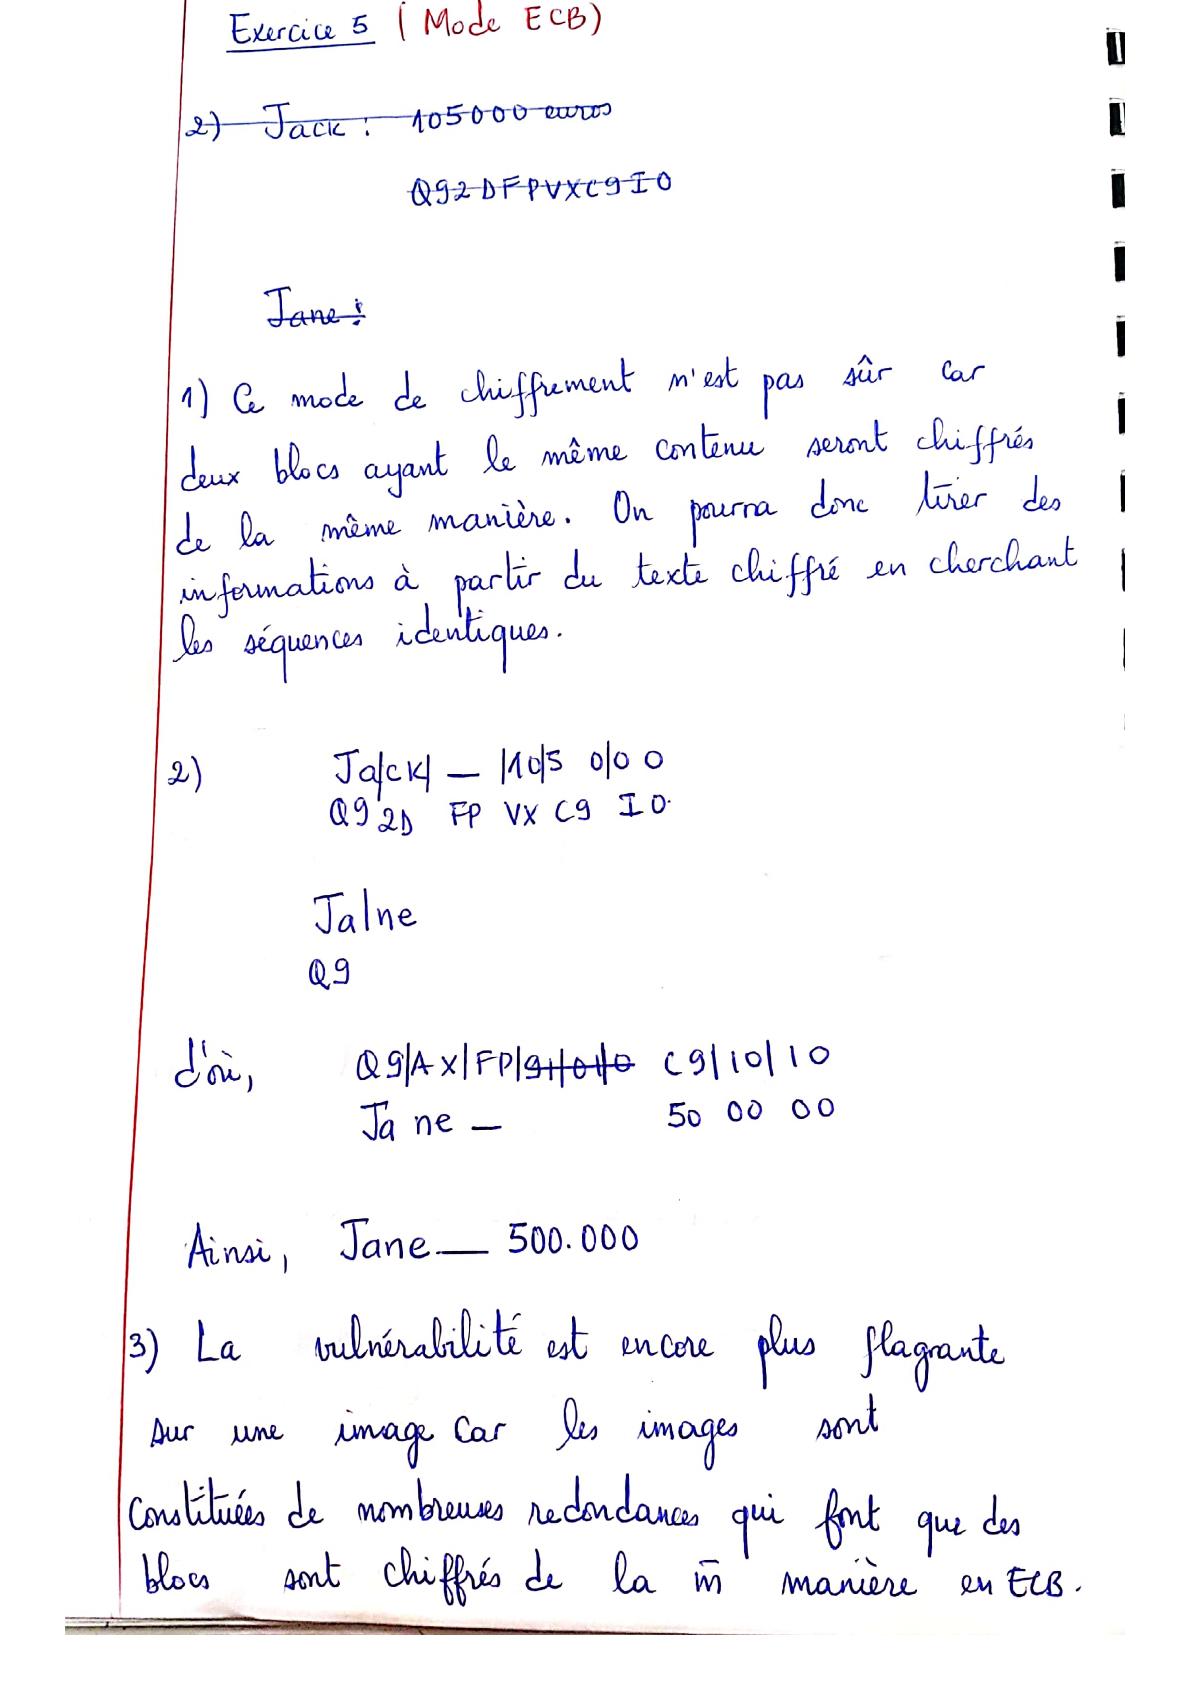 Exercice 5 ( Mode ECB)
2) Jack : 105000 euros
Q92DFPVXC9IO
Jane :
1) Ce mode de chiffrement n'est pas sûr car
deux blocs ayant le même contenu seront chiffrés
de la même manière. On pourra donc tirer des
informations à partir du texte chiffré en cherchant
les séquences identiques.
2) Ja/ck/ — /10/5 0/0 0
Q9 2D FP VX C9 IO.
Ja/ne
Q9
d'où, Q9/AX/FP/ C9/IO/IO
Ja ne — 50 00 00
Ainsi, Jane — 500.000
3) La vulnérabilité est encore plus flagrante
sur une image car les images sont
constituées de nombreuses redondances qui font que des
blocs sont chiffrés de la m̄ manière en ECB.